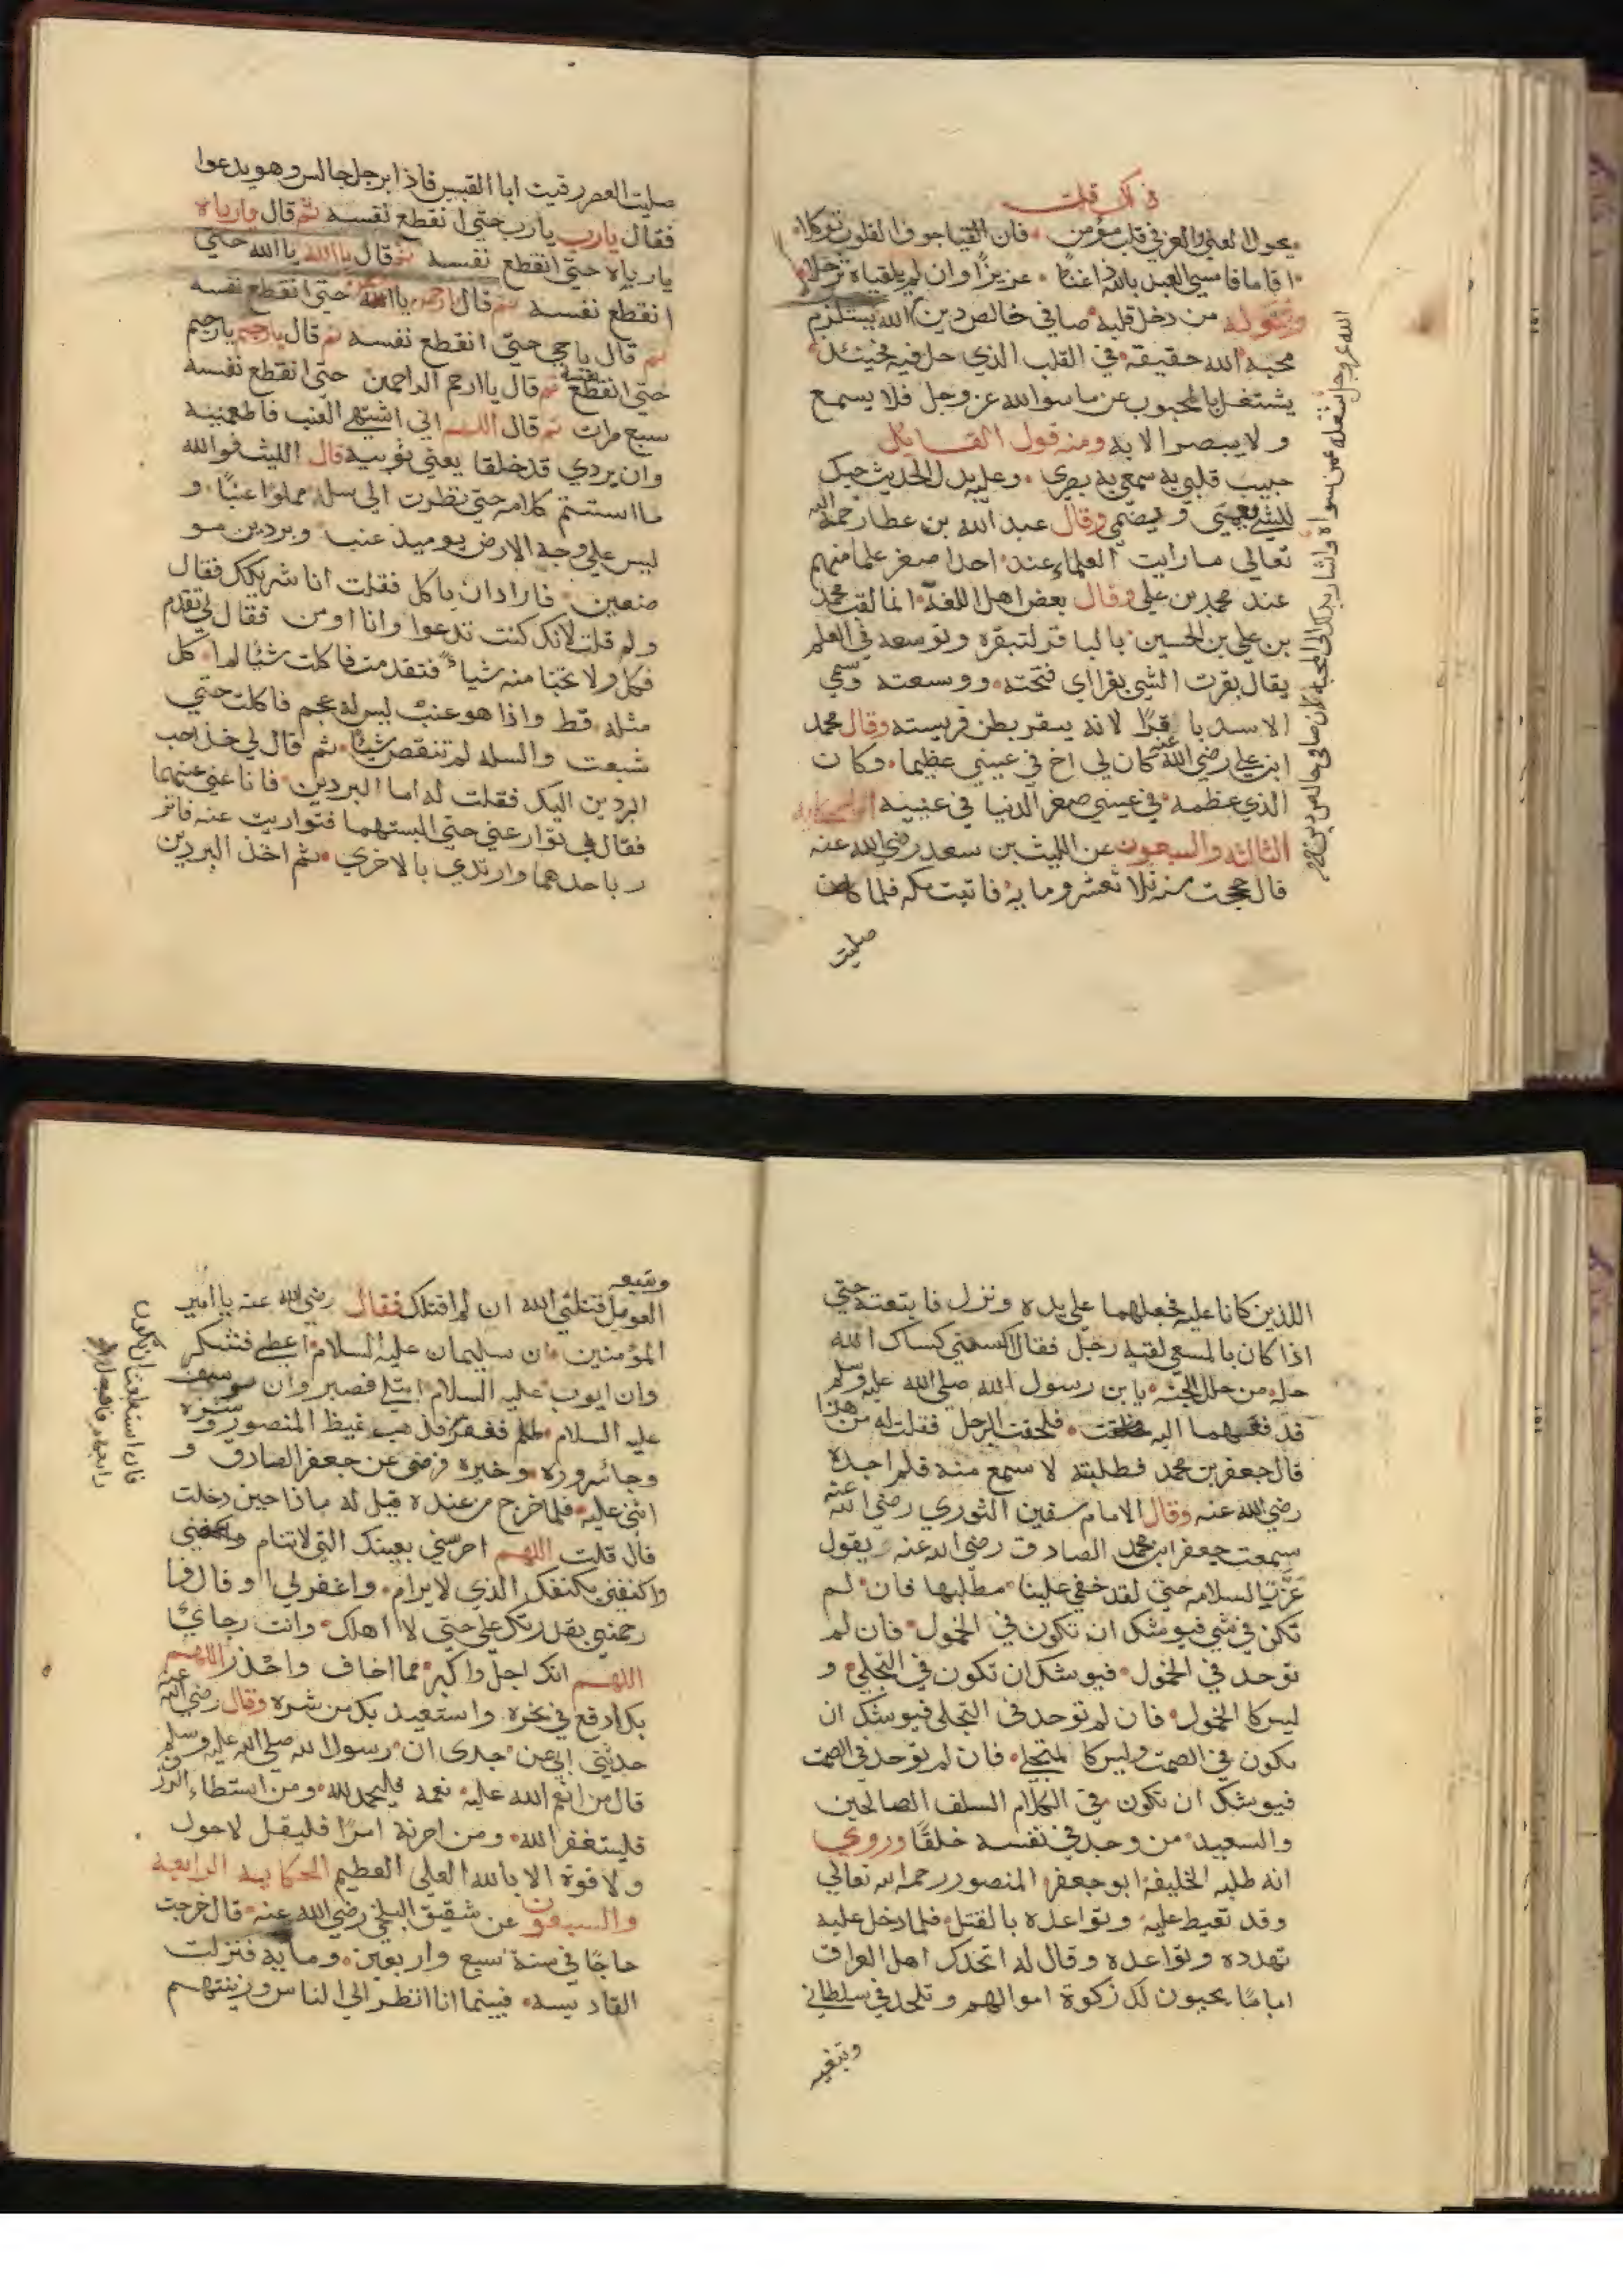 في ذلك قلت
يجول الغني والعز في قلب مؤمن فان القيا جوف القلوب توكلا
اقاما فامسي العبد بالله ذا غنا عزيزا وان لم يلقياه ترحلا
وقوله من دخل قلبه صافي خالص دين الله يستلزم
محبه الله حقيقه في القلب الذي حل فيه فحينئذ
يشتغل بالمحبوب عن ما سوا الله عز وجل فلا يسمع
ولا يبصر الا به ومنه قول القايل
حبيب قلبي به سمعي به بصري وعليه يدل الحديث حبك
للشي يعمي و يصم وقال عبد الله بن عطا رحمه الله
تعالي ما رايت العلماء عند احدا صغر علما منهم
عند محمد بن علي وقال بعض اهل اللغة انما لقب محمد
بن علي بن الحسين بالباقر لتبقره وتوسعه في العلم
يقال بقرت الشي بقرا اي فتحته ووسعته وسمي
الاسد باقرا لانه يبقر بطن فريسته وقال محمد
ابن علي رضي الله عنه كان لي اخ في عيني عظيما وكان
الذي عظمه في عيني صغر الدنيا في عينيه الحكايه
الثالثه والسبعون عن الليث بن سعد رضي الله عنه
قال حججت سنه ثلاثه عشر ومايه فاتيت مكه فلما كان
صليت
صليت العصر رقيت ابا القبيس فاذا برجل جالس وهو يدعوا
فقال يارب يارب حتي انقطع نفسه ثم قال يارباه
يارباه حتي انقطع نفسه ثم قال يا الله يا الله حتي
انقطع نفسه ثم قال يا رحمن يا الله حتي انقطع نفسه
ثم قال يا حي حتي انقطع نفسه ثم قال يا رحيم يا رحيم
حتي انقطع نفسه ثم قال يا ارحم الراحمين حتي انقطع نفسه
سبع مرات ثم قال اللهم اني اشتهي العنب فاطعمنيه
وان بردي قد خلقا يعني ثوبيه قال الليث فوالله
ما استتم كلامه حتي نظرت الي سله مملوا عنبا و
ليس علي وجه الارض يوميذ عنب وبردين مو
ضعين فاراد ان ياكل فقلت انا شريكك فقال
ولم قلت لانك كنت تدعوا وانا اومن فقال لي تقدم
فكل ولا تخبا منه شيا فتقدمت فاكلت شيا لم اكل
مثله قط واذا هو عنب ليس له عجم فاكلت حتي
شبعت والسله لم تنقص شيا ثم قال لي خذ احب
البردين اليك فقلت له اما البردين فانا غني عنهما
فقال لي توار عني حتي البستهما فتواريت عنه فاتز
ر باحدهما وارتدي بالاخري ثم اخذ البردين
اللذين كانا عليه فجعلهما علي يده ونزل فاتبعته حتي
اذا كان بالمسعي لقيه رجل فقال اكسني كساك الله
حله من حلل الجنه يا بن رسول الله صلي الله عليه وسلم
قد فعهما اليه فلحقت الرجل فقلت له من هذا
قال جعفر بن محمد فطلبته لا سمع منه فلم اجده
رضي الله عنه وقال الامام سفين الثوري رضي الله عنه
سمعت جعفر ابن محمد الصادق رضي الله عنه يقول
عزت السلامه حتي لقد خفي علينا مطلبها فان لم
تكن في شي فيوشك ان تكون في الخمول فان لم
توجد في الخمول فيوشك ان تكون في التخلي و
ليس كا الخمول فان لم توجد في التخلي فيوشك ان
تكون في الصمت وليس كا لتخلي فان لم توجد في الصمت
فيوشك ان تكون في الكلام السلف الصالحين
والسعيد من وجد في نفسه خلقا وروي
انه طلبه الخليفه ابو جعفر المنصور رحمه الله تعالي
وقد تغيط عليه وتواعده بالقتل فلما دخل عليه
تهدده وتواعده وقال له اتخذك اهل العراق
اماما يجبون لك زكوة اموالهم وتلحد في سلطاني
وتبغيه
العوايل قتلني الله ان لم اقتلك فقال رضي الله عنه يا امير
المؤمنين ان سليمان عليه السلام اعطي فشكر
وان ايوب عليه السلام ابتلي فصبر وان يوسف
عليه السلام ظلم فغفر فذهب غيظ المنصور وشره
وجا سروره وخيره فرضي عن جعفر الصادق و
اثني عليه فلما خرج من عنده قيل له ماذا حين دخلت
قال قلت اللهم احرسني بعينك التي لا تنام
واكنفني بكنفك الذي لا يرام واغفر لي
رحمني بقدرتك علي حتي لا اهلك وانت رجائي
اللهم انك اجل واكبر مما اخاف واحذر اللهم
بك ادفع في نحره واستعيذ بك من شره وقال رضي الله عنه
حدثني ابي عن جدي ان رسول الله صلي الله عليه وسلم
قال من انعم الله عليه نعمه فليحمد لله ومن استطاء الرزق
فليستغفر الله ومن احزنه امرا فليقل لا حول
ولا قوة الا بالله العلي العظيم الحكايه الرابعه
والسبعون عن شقيق البلخي رضي الله عنه قال خرجت
حاجا في سنة تسع واربعين ومايه فنزلت
القادسيه فبينما انا انظر الي الناس وزينتهم
فان استطعت ان تكون